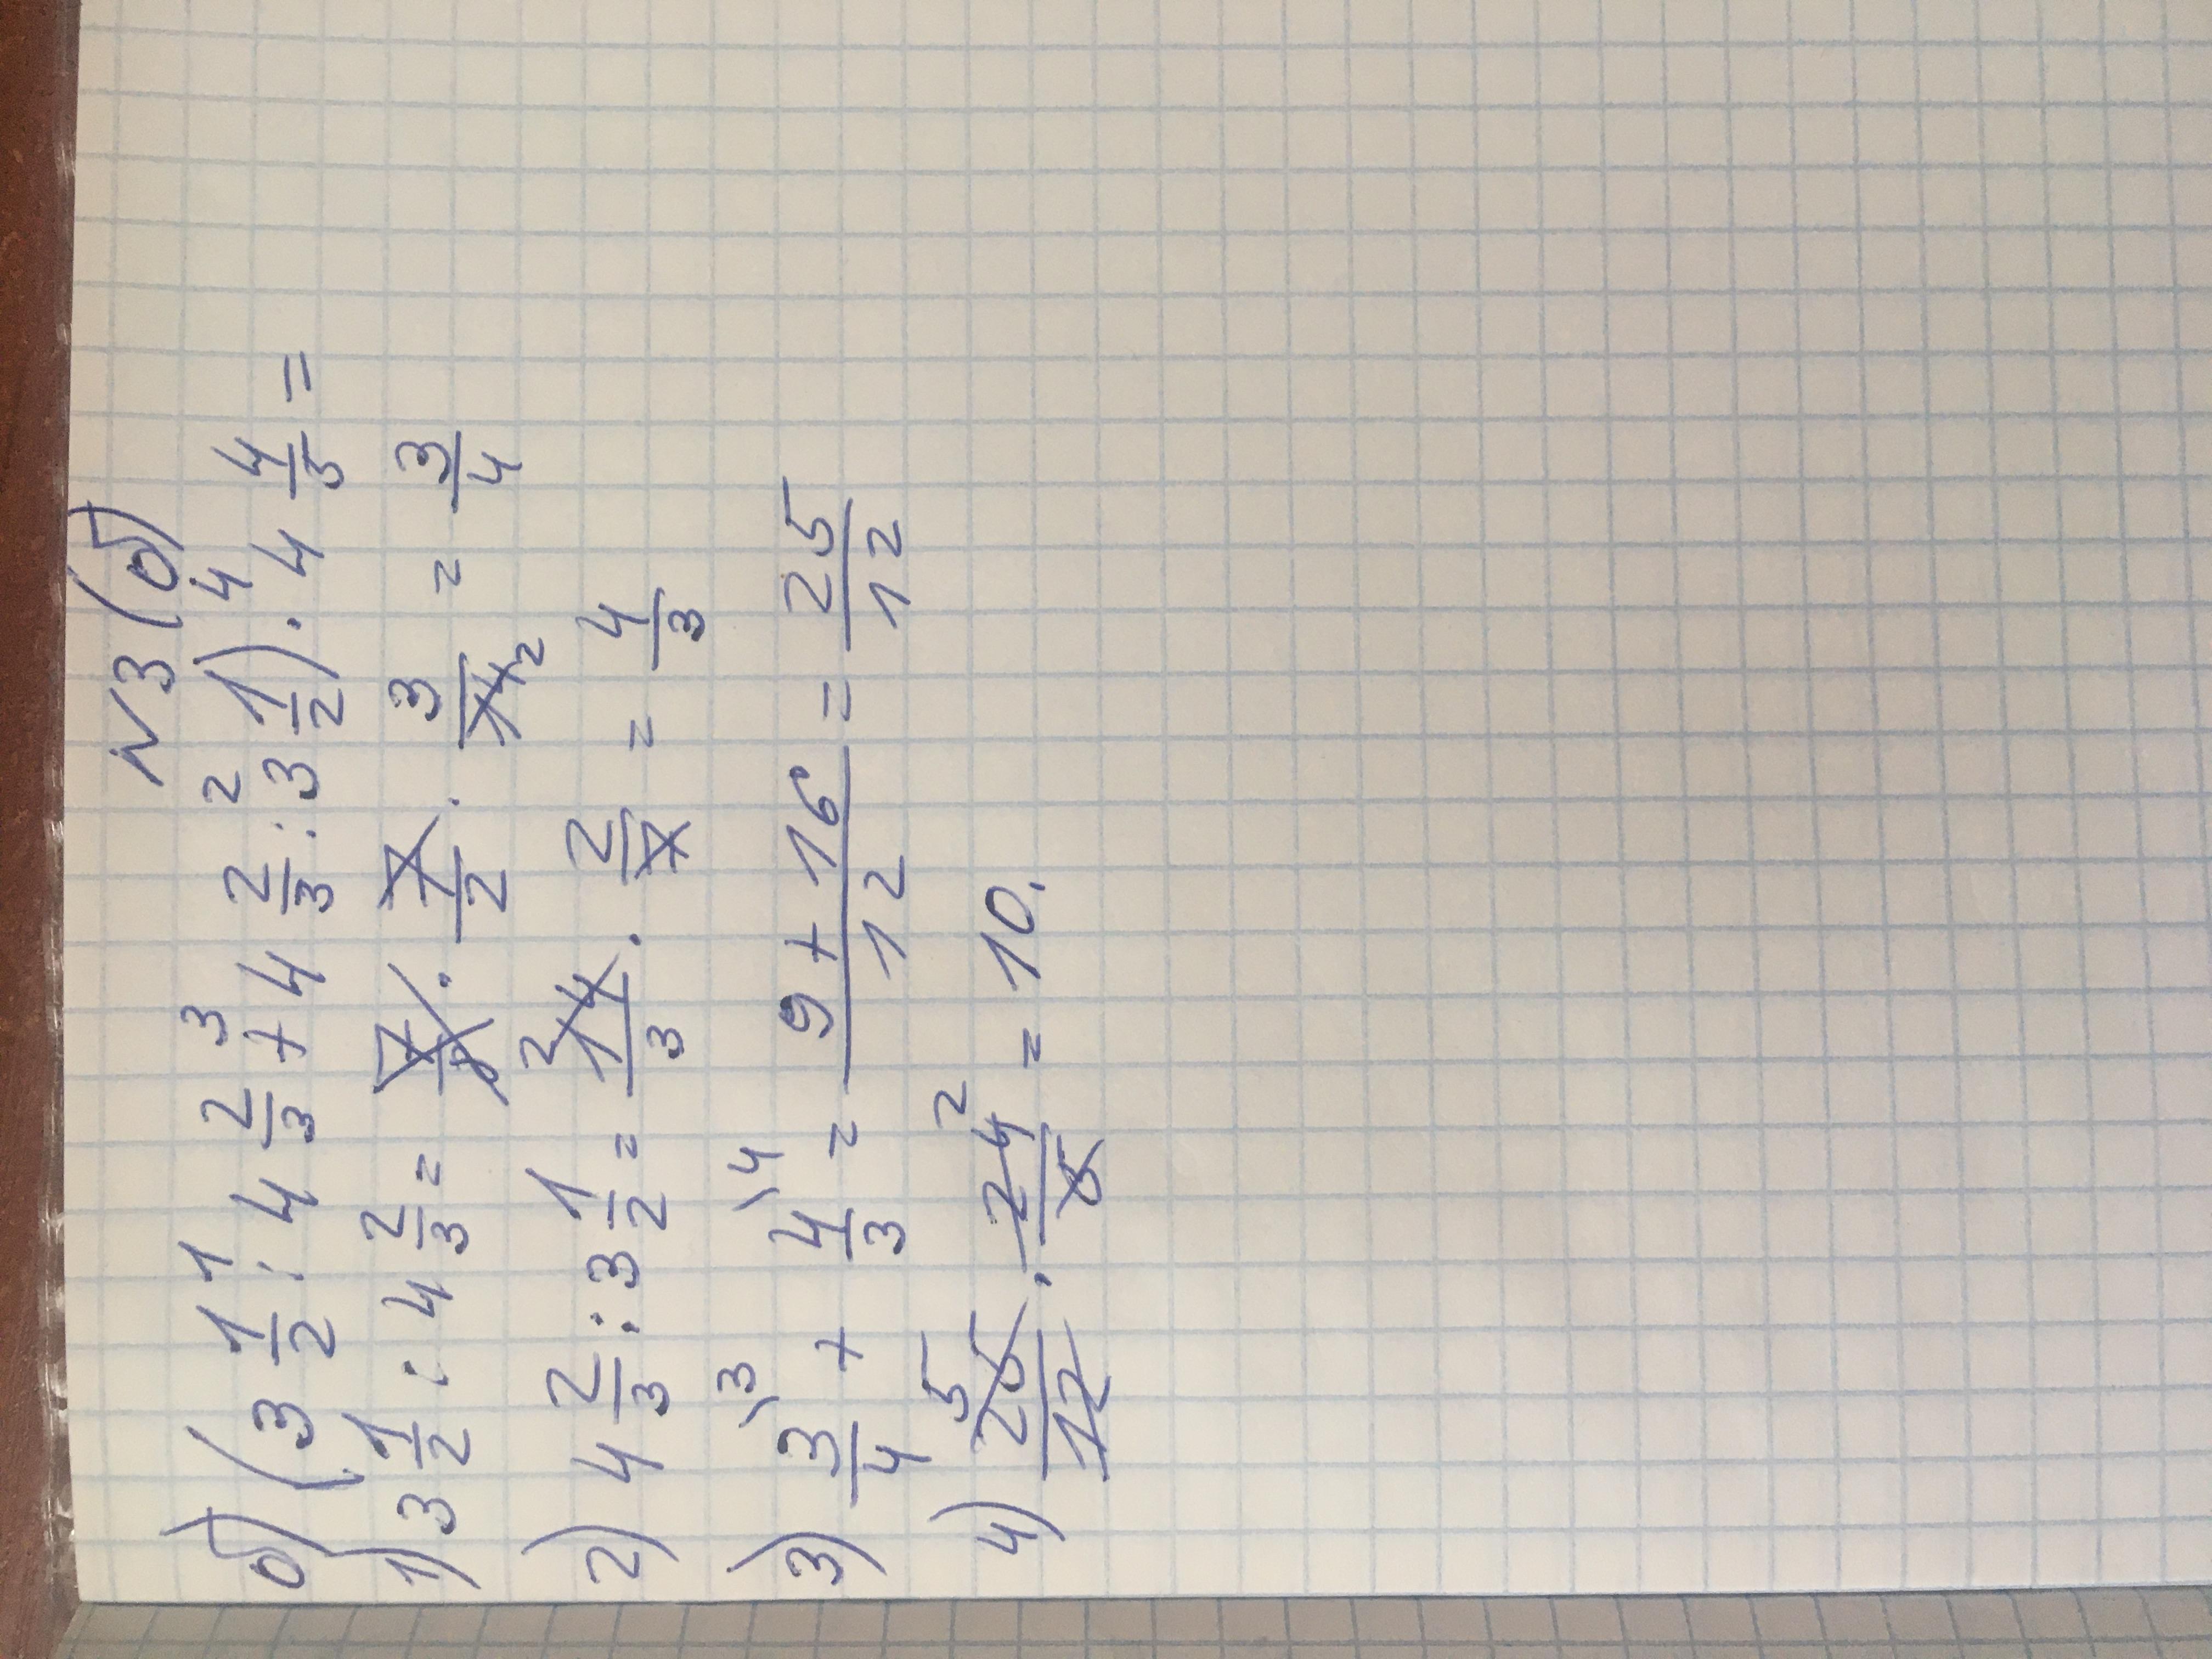 N3 (б)
б) (3 1/2 : 4 2/3 + 4 2/3 : 3 1/2) · 4 4/5 =
1) 3 1/2 : 4 2/3 = 7/2 · 3/14 2 = 3/4
2) 4 2/3 : 3 1/2 = 2 14/3 · 2/7 = 4/3
3) 3/4 \3 + 4/3 \4 = 9+16/12 = 25/12
4) 5 25/12 · 24/5 2 = 10.